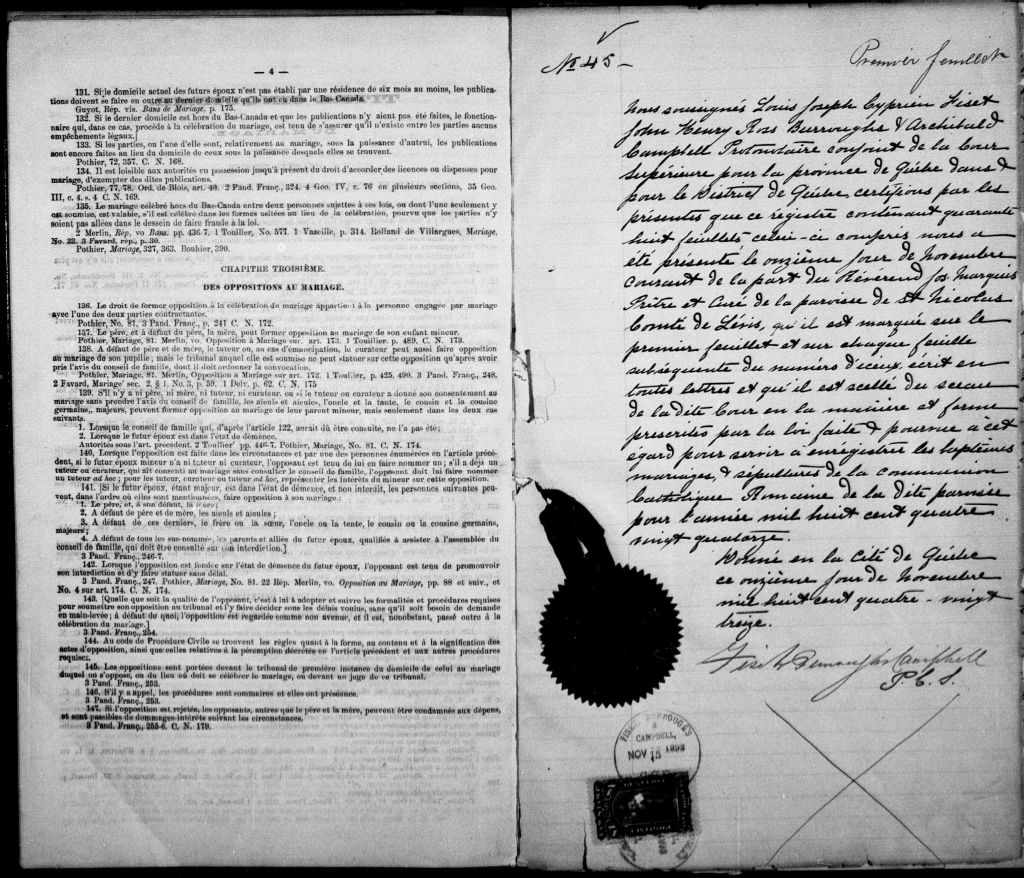 — 4 —
131. Si le domicile actuel des futurs époux n'est pas établi par une résidence de six mois au moins, les publica-
tions doivent se faire en outre au dernier domicile qu'ils ont eu dans le Bas-Canada.
Guyot, Rép. vis. Bans de Mariage, p. 175.
132. Si le dernier domicile est hors du Bas-Canada et que les publications n'y aient pas été faites, le fonction-
naire qui, dans ce cas, procède à la célébration du mariage, est tenu de s'assurer qu'il n'existe entre les parties aucun
empêchements légaux.]
133. Si les parties, ou l'une d'elle sont, relativement au mariage, sous la puissance d'autrui, les publications
sont encore faites au lieu du domicile de ceux sous la puissance desquels elles se trouvent.
Pothier, 72, 357. C. N. 168.
134. Il est loisible aux autorités en possession jusqu'à présent du droit d'accorder des licences ou dispenses pour
mariage, d'exempter des dites publications.
Pothier, 77, 78. Ord. de Blois, art. 40. 2 Pand. Franç., 324. 4 Geo. IV, c. 76 en plusieurs sections, 35 Geo.
III, c. 4. s. 4 C. N. 169.
135. Le mariage célébré hors du Bas-Canda entre deux personnes sujettes à ses lois, ou dont l'une seulement y
est soumise, est valable, s'il est célébré dans les formes usitées au lieu de la célébration, pourvu que les parties n'y
soient pas allées dans le dessein de faire fraude à la loi.
2 Merlin, Rép, vo Bans. pp. 436-7. 1 Toullier, No. 577. 1 Vazeille, p. 314. Rolland de Villargues, Mariage,
No. 22. 3 Favard, rép., p. 30.
Pothier, Mariage, 327, 363. Bouhier, 390.
CHAPITRE TROISIÈME.
DES OPPOSITIONS AU MARIAGE.
136. Le droit de former opposition à la célébration du mariage appartient à la personne engagée par mariage
avec l'une des deux parties contractantes.
Pothier, No. 81. 3 Pand. Franç., p. 241 C. N. 172.
137. Le père, et à défaut du père, la mère, peut former opposition au mariage de son enfant mineur.
Pothier, Mariage, 81. Merlin, vo. Opposition à Mariage sur. art. 173. 1 Touillier. p. 489. C. N. 173.
138. A défaut de père et de mère, le tuteur ou, au cas d'émancipation, le curateur peut aussi faire opposition
au mariage de son pupille; mais le tribunal auquel elle est soumise ne peut statuer sur cette opposition qu'après avoir
pris l'avis du conseil de famille, dont il doit ordonner la convocation.
Pothier, Mariage, 81. Merlin, Opposition à Mariage sur art. 172. 1 Toullier, p. 425, 490. 3 Pand. Franç., 248.
2 Favard, Mariage' sec. 2, § 1. No. 3, p. 59. 1 Delv. p. 62. C. N. 175
139. S'il n'y a ni père, ni mère, ni tuteur, ni curateur, ou si le tuteur ou curateur a donné son consentement au
mariage sans prendre l'avis du conseil de famille, les aïeuls et aïeules, l'oncle et la tante, le cousin et la cousine
germains,, majeurs, peuvent former opposition au mariage de leur parent mineur, mais seulement dans les deux cas
suivants.
1. Lorsque le conseil de famille qui, d'après l'article 122, aurait dû être consulté, ne l'a pas été;
2. Lorsque le futur époux est dans l'état de démence.
Autorités sous l'art. précédent. 2 Toullier pp. 446-7. Pothier, Mariage, No. 81. C. N. 174.
140. Lorsque l'opposition est faite dans les circonstances et par une des personnes énumérées en l'article précé-
dent, si le futur époux mineur n'a ni tuteur ni curateur, l'opposant est tenu de lui en faire nommer un; s'il a déjà un
tuteur ou curateur, qui ait consenti au mariage sans consulter le conseil de famille, l'opposant doit lui faire nommer
un tuteur ad hoc; pour les tuteur, curateur ou tuteur ad hoc, représenter les intérêts du mineur sur cette opposition.
141. [Si le futur époux, étant majeur, est dans l'état de démence, et non interdit, les personnes suivantes peu-
vent, dans l'ordre où elles sont mentionnées, faire opposition à son mariage:
1. Le père, et, à son défaut, la mère;
2. A défaut de père et de mère, les aïeuls et aïeules;
3. A défaut de ces derniers, le frère ou la sœur, l'oncle ou la tante, le cousin ou la cousine germains,
majeurs;
4. A défaut de tous les sus-nommés, les parents et alliés du futur époux, qualifiés à assister à l'assemblée du
conseil de famille, qui doit être consulté sur son interdiction.]
3 Pand. Franç., 246-7.
142. Lorsque l'opposition est fondée sur l'état de démence du futur époux, l'opposant est tenu de promouvoir
son interdiction et d'y faire statuer sans délai.
3 Pand. Franç., 247. Pothier, Mariage, No. 81. 22 Rép. Merlin, vo. Opposition au Mariage, pp. 88 et suiv., et
No. 4 sur art. 174. C. N. 174.
143. [Quelle que soit la qualité de l'opposant, c'est à lui à adopter et suivre les formalités et procédures requises
pour soumettre son opposition au tribunal et l'y faire décider sous les délais voulus, sans qu'il soit besoin de demande
en main-levée; à défaut de quoi, l'opposition est regardée comme non avenue, et il est, nonobstant, passé outre à la
célébration du mariage.]
3 Pand. Franç., 254.
144. Au code de Procédure Civile se trouvent les règles quant à la forme, au contenu et à la signification des
actes d'opposition, ainsi que celles relatives à la péremption décrétée en l'article précédent et aux autres procédures
requises.
145. Les oppositions sont portées devant le tribunal de première instance du domicile de celui au mariage
duquel on s'oppose, ou du lieu où doit se célébrer le mariage, ou devant un juge de ce tribunal.
3 Pand. Franç., 253.
146. S'il y a appel, les procédures sont sommaires et elles ont préséance.
3 Pand. Franç., 253.
147. Si l'opposition est rejetée, les opposants, autres que le père et la mère, peuvent être condamnés aux dépens,
et sont passibles de dommages-intérêts suivant les circonstances.
3 Pand. Franç., 255-6. C. N. 179.
No 45 —
Premier feuillet
Nous soussignés Louis Joseph Cyprien Fiset
John Henry Ross Burroughs & Archibald
Campbell Protonotaire conjoint de la Cour
Superieure pour la province de Québec dans &
pour le District de Québec, certifions par les
présentes que ce registre contenant quarante
huit feuillets celui-ci compris nous a
été présenté le onzième jour de Novembre
courant de la part du Révérend Jos. Marquis
Prêtre et Curé de la paroisse de St Nicolas
Comté de Lévis, qu'il est marqué sur le
premier feuillet et sur chaque feuille
subséquente du numéro d'iceux, écrit en
toutes lettres et qu'il est scellé du sceau
de la dite Cour en la manière et forme
prescrites par la loi faite & pourvue à cet
egard pour servir à enrégistrer les baptêmes
mariages, & sépultures de la communion
Catholique Romaine de la dite paroisse
pour l'année mil huit cent quatre
vingt quatorze.
Donné en la Cité de Québec
ce onzième jour de Novembre
mil huit cent quatre-vingt
treize.
Fiset Burroughs Campbell
P. C. S.
FISET, BURROUGHS
&
CAMPBELL,
NOV 15 1893